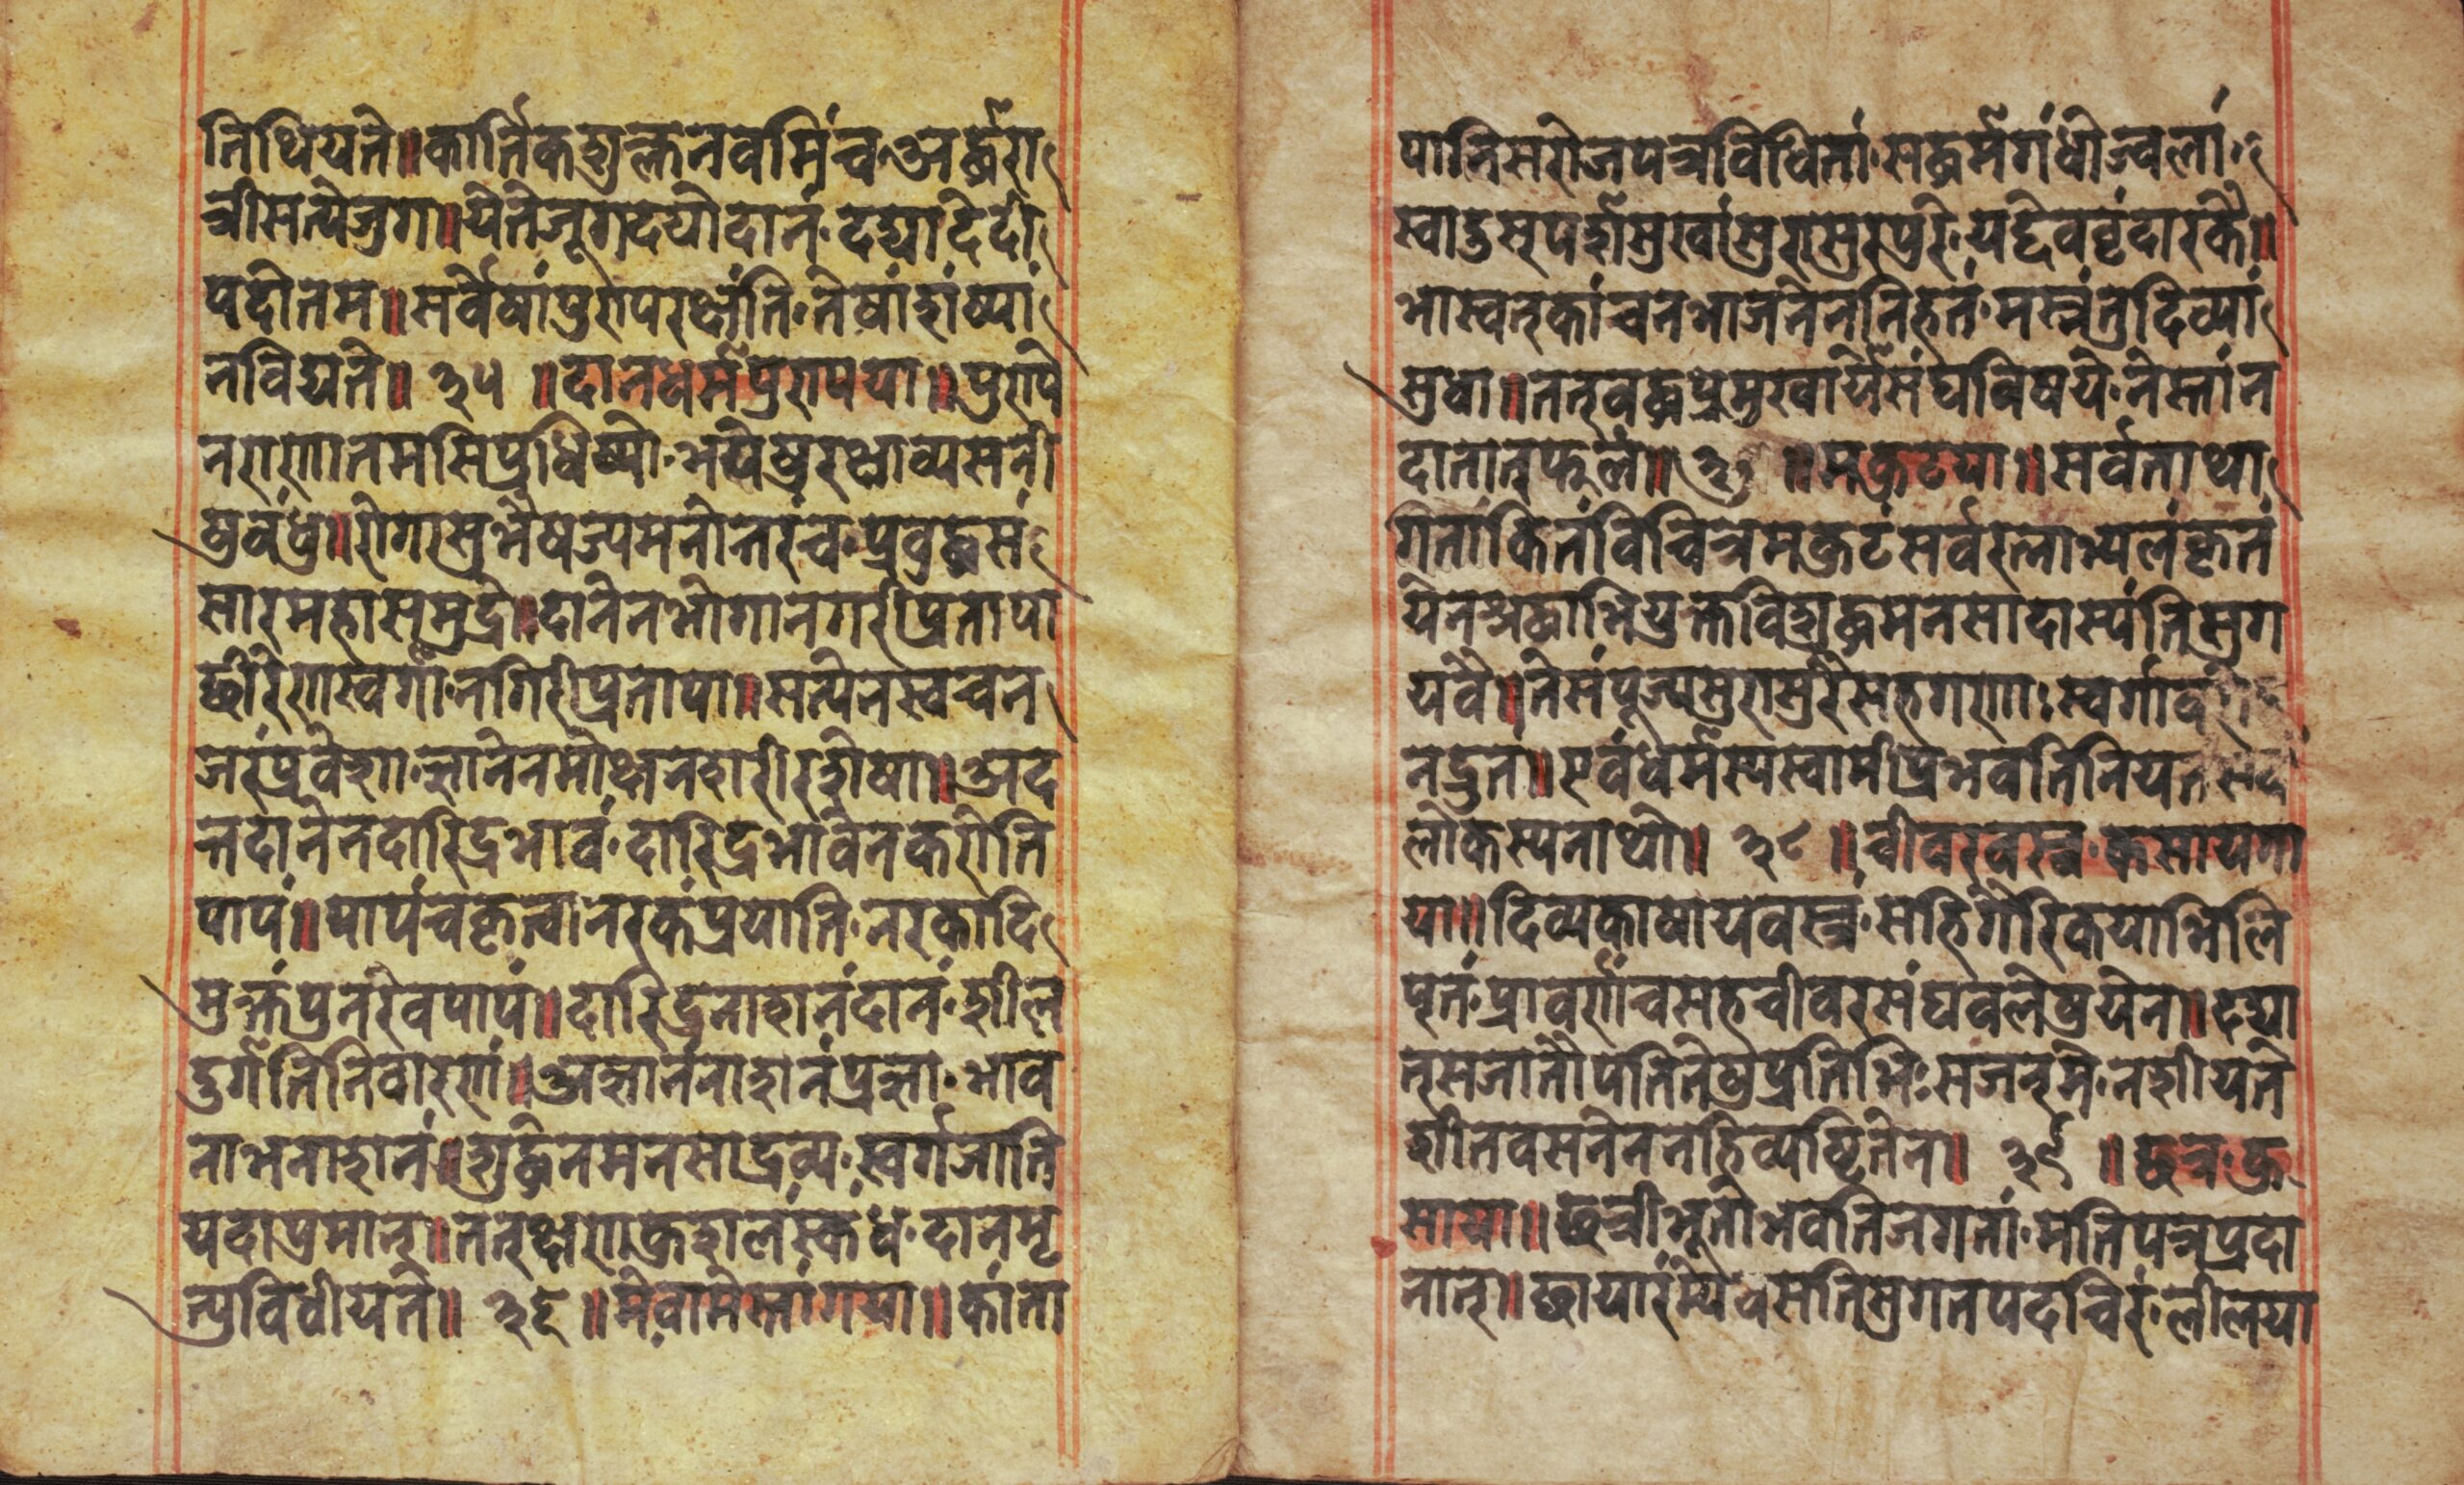 तिथियते॥कार्तिकशुक्लनवमिंच·अर्द्धरा
त्रीसत्येजुग॥येतेजूगदयोदानं·दद्यादिदी
पदोतम॥सर्वेषांपुरुपरक्षंति·तेषांहांष्यां
नविद्यते॥ ३५ ॥दानधर्मपुरुपया॥पुरुपे
नराणानमसिपुधिष्यो·भयेषुरक्षाव्यसनी
षुबंधु॥रोगेसुभैषज्यमनोत्तरंच·प्रवुद्धसं
सारमहासमुद्रो॥दानेनभोगानगरीप्रतापा
छीरेणस्वर्गानगिरीप्रतापा॥सत्येनस्वचन
जरंप्रवेशा·ज्ञानेनमोक्षनहारीरशेषा॥अद
त्तदानेनदारिद्रभावं·दारिद्रभावेनकरोति
पापं॥पापंचकृत्वानरकंप्रयाति·नरकादि
मुक्तंपुनरेवपापं॥दारिद्रनाशनंदानं·शील
दुर्गतिनिवारणं॥अज्ञानंनाशनंप्रज्ञा·भाव
नाभनाशनं॥शुद्धेनमनसाद्रव्य·स्वर्गजाति
यदाप्रमान्॥तत्क्षणेकुशलस्कंध·दानमृ
त्युविधीयते॥ ३६ ॥मेवामेलांगया॥कांता
पानिसरोजपत्रविधितां·सद्धर्मगंधोज्वलां
स्वादुसूपर्शसुखांसुरासुरप्ररि·यद्देववृंदारकै॥
भास्वत्कांचनभाजनेननिहतं·मस्त्रंतुदिव्यां
सुधा॥तत्बद्धप्रमुखार्यसंघविषये·तेलांन
दातात्फलं॥ ३७ ॥मकुटया॥सर्वनाथा
गितांकितंविचित्रमकुटंसर्वरत्नाभ्यलंकृतं
येनश्रद्धाभियुक्तविशुद्धमनसादास्यंतिसुग
यवै॥तेसंपूज्यसुरासुरैसहगणाः स्वर्गाव
नद्रुतं॥सर्वधर्मस्यस्वामीप्रभवतिनियत
लोकेस्यनाथो॥ ३८ ॥चीवरवस्त्र·कसायगा
या॥दिव्यकाषायवस्त्रं·सहिगैरिकयाभिलि
पृतं·प्रावर्णांचसहचीवरसंघवलेषुयेन॥दद्या
त्सजातौपतितेषुप्रतिभिः·सजन्मे·नशीयते
शीतवसनेननहिव्याधितेन॥ ३९ ॥छत्र·कु
सायां॥छत्रीभूतोभवतिजगतां·मतिपत्रप्रदा
नात्॥छायारंम्येवसतिसुगतपदचिरं·लीलया